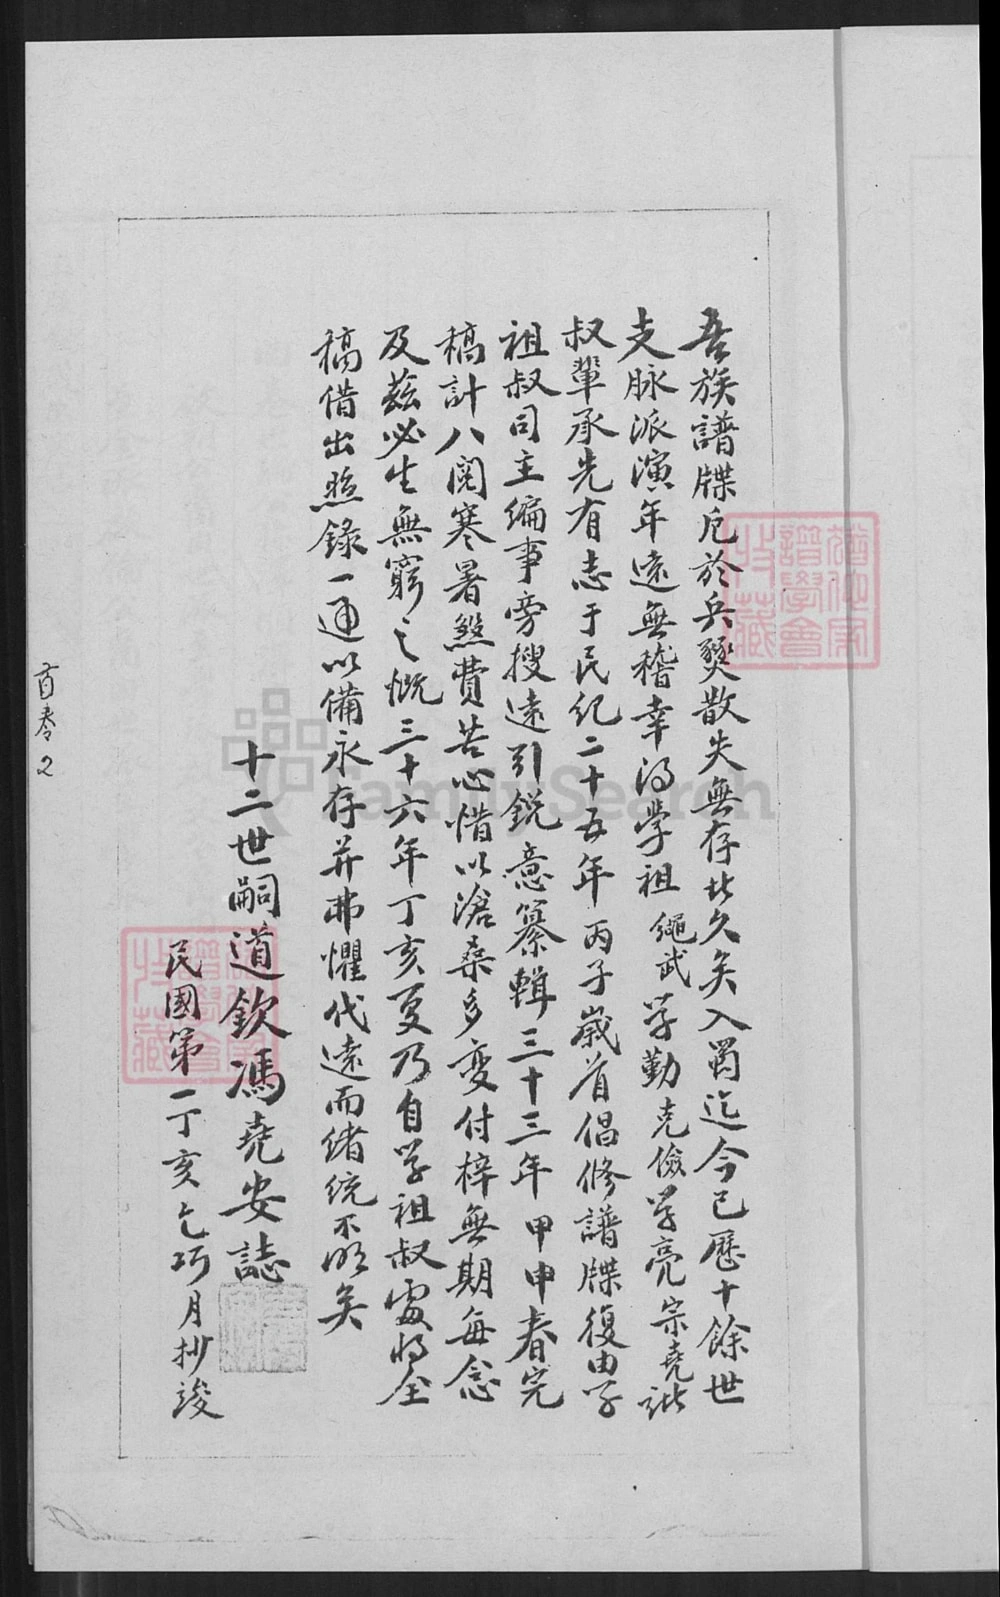 吾族譜牒戹於兵燹散失無存也久矣入蜀迄今已歷十餘世
支脉派演年遠無稽幸得學祖繩武学勤克儉学亮宗堯諸
叔輩承先有志于民紀二十五年丙子嵗首倡修譜牒復由学
祖叔司主编事旁搜遠引銳意纂輯三十三年甲申春完
稿計八閱寒暑煞費苦心惜以滄桑多变付梓無期每念
及兹必生無窮之慨三十六年丁亥夏乃自学祖叔處将全
稿借出照錄一通以備永存并弗懼代遠而緒統不明矣
十二世嗣道欽馮堯安誌
民國第一丁亥乞巧月抄竣
首卷2
FamilySearch
譜學會
收藏
譜學會
收藏